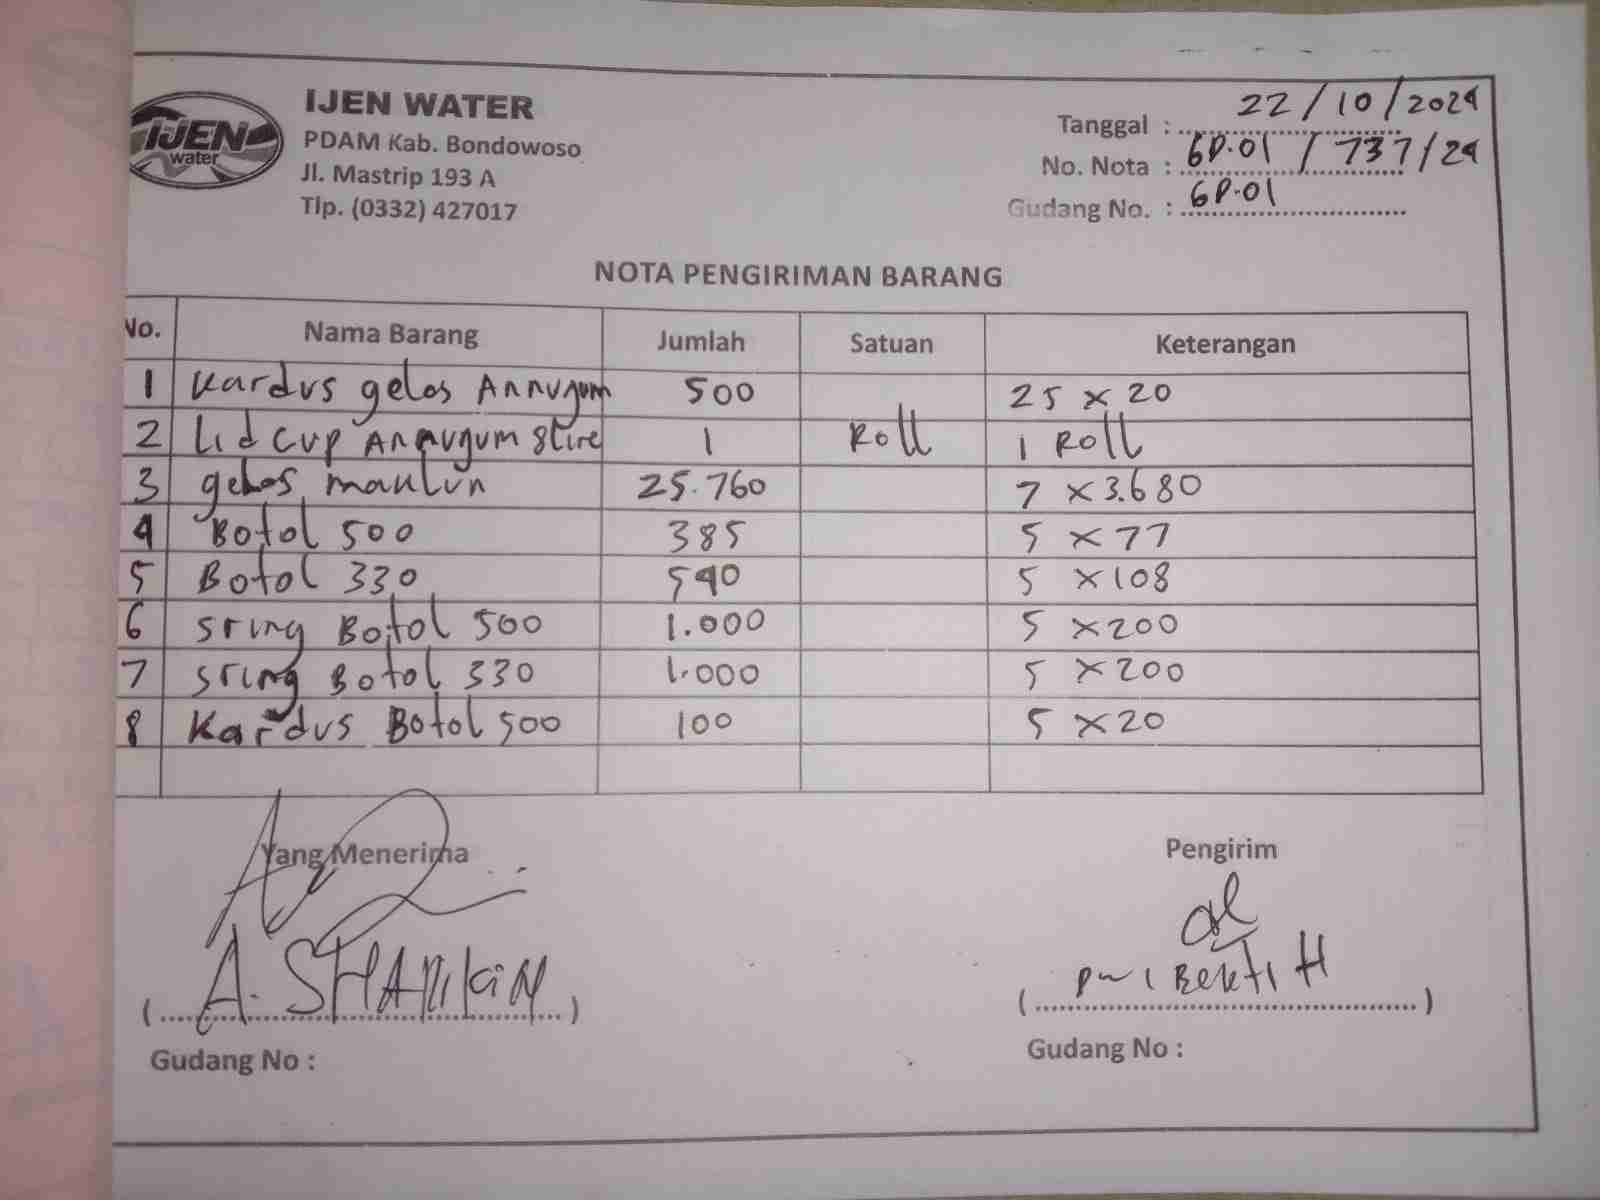 IJEN WATER
PDAM Kab. Bondowoso
Jl. Mastrip 193 A
Tlp. (0332) 427017
IJEN
water
Tanggal : 22/10/2024
No. Nota : GD.01/737/24
Gudang No. : GD.01
NOTA PENGIRIMAN BARANG
No. Nama Barang Jumlah Satuan Keterangan
1 Kardus gelas Annugum 500 25 x 20
2 Lid Cup Annugum 1 Roll 1 Roll
3 gelas 25.760 7 x 3.680
4 Botol 500 385 5 x 77
5 Botol 330 540 5 x 108
6 sring Botol 500 1.000 5 x 200
7 sring Botol 330 1.000 5 x 200
8 Kardus Botol 500 100 5 x 20
Yang Menerima Pengirim
A. Bekti H
Gudang No : Gudang No :